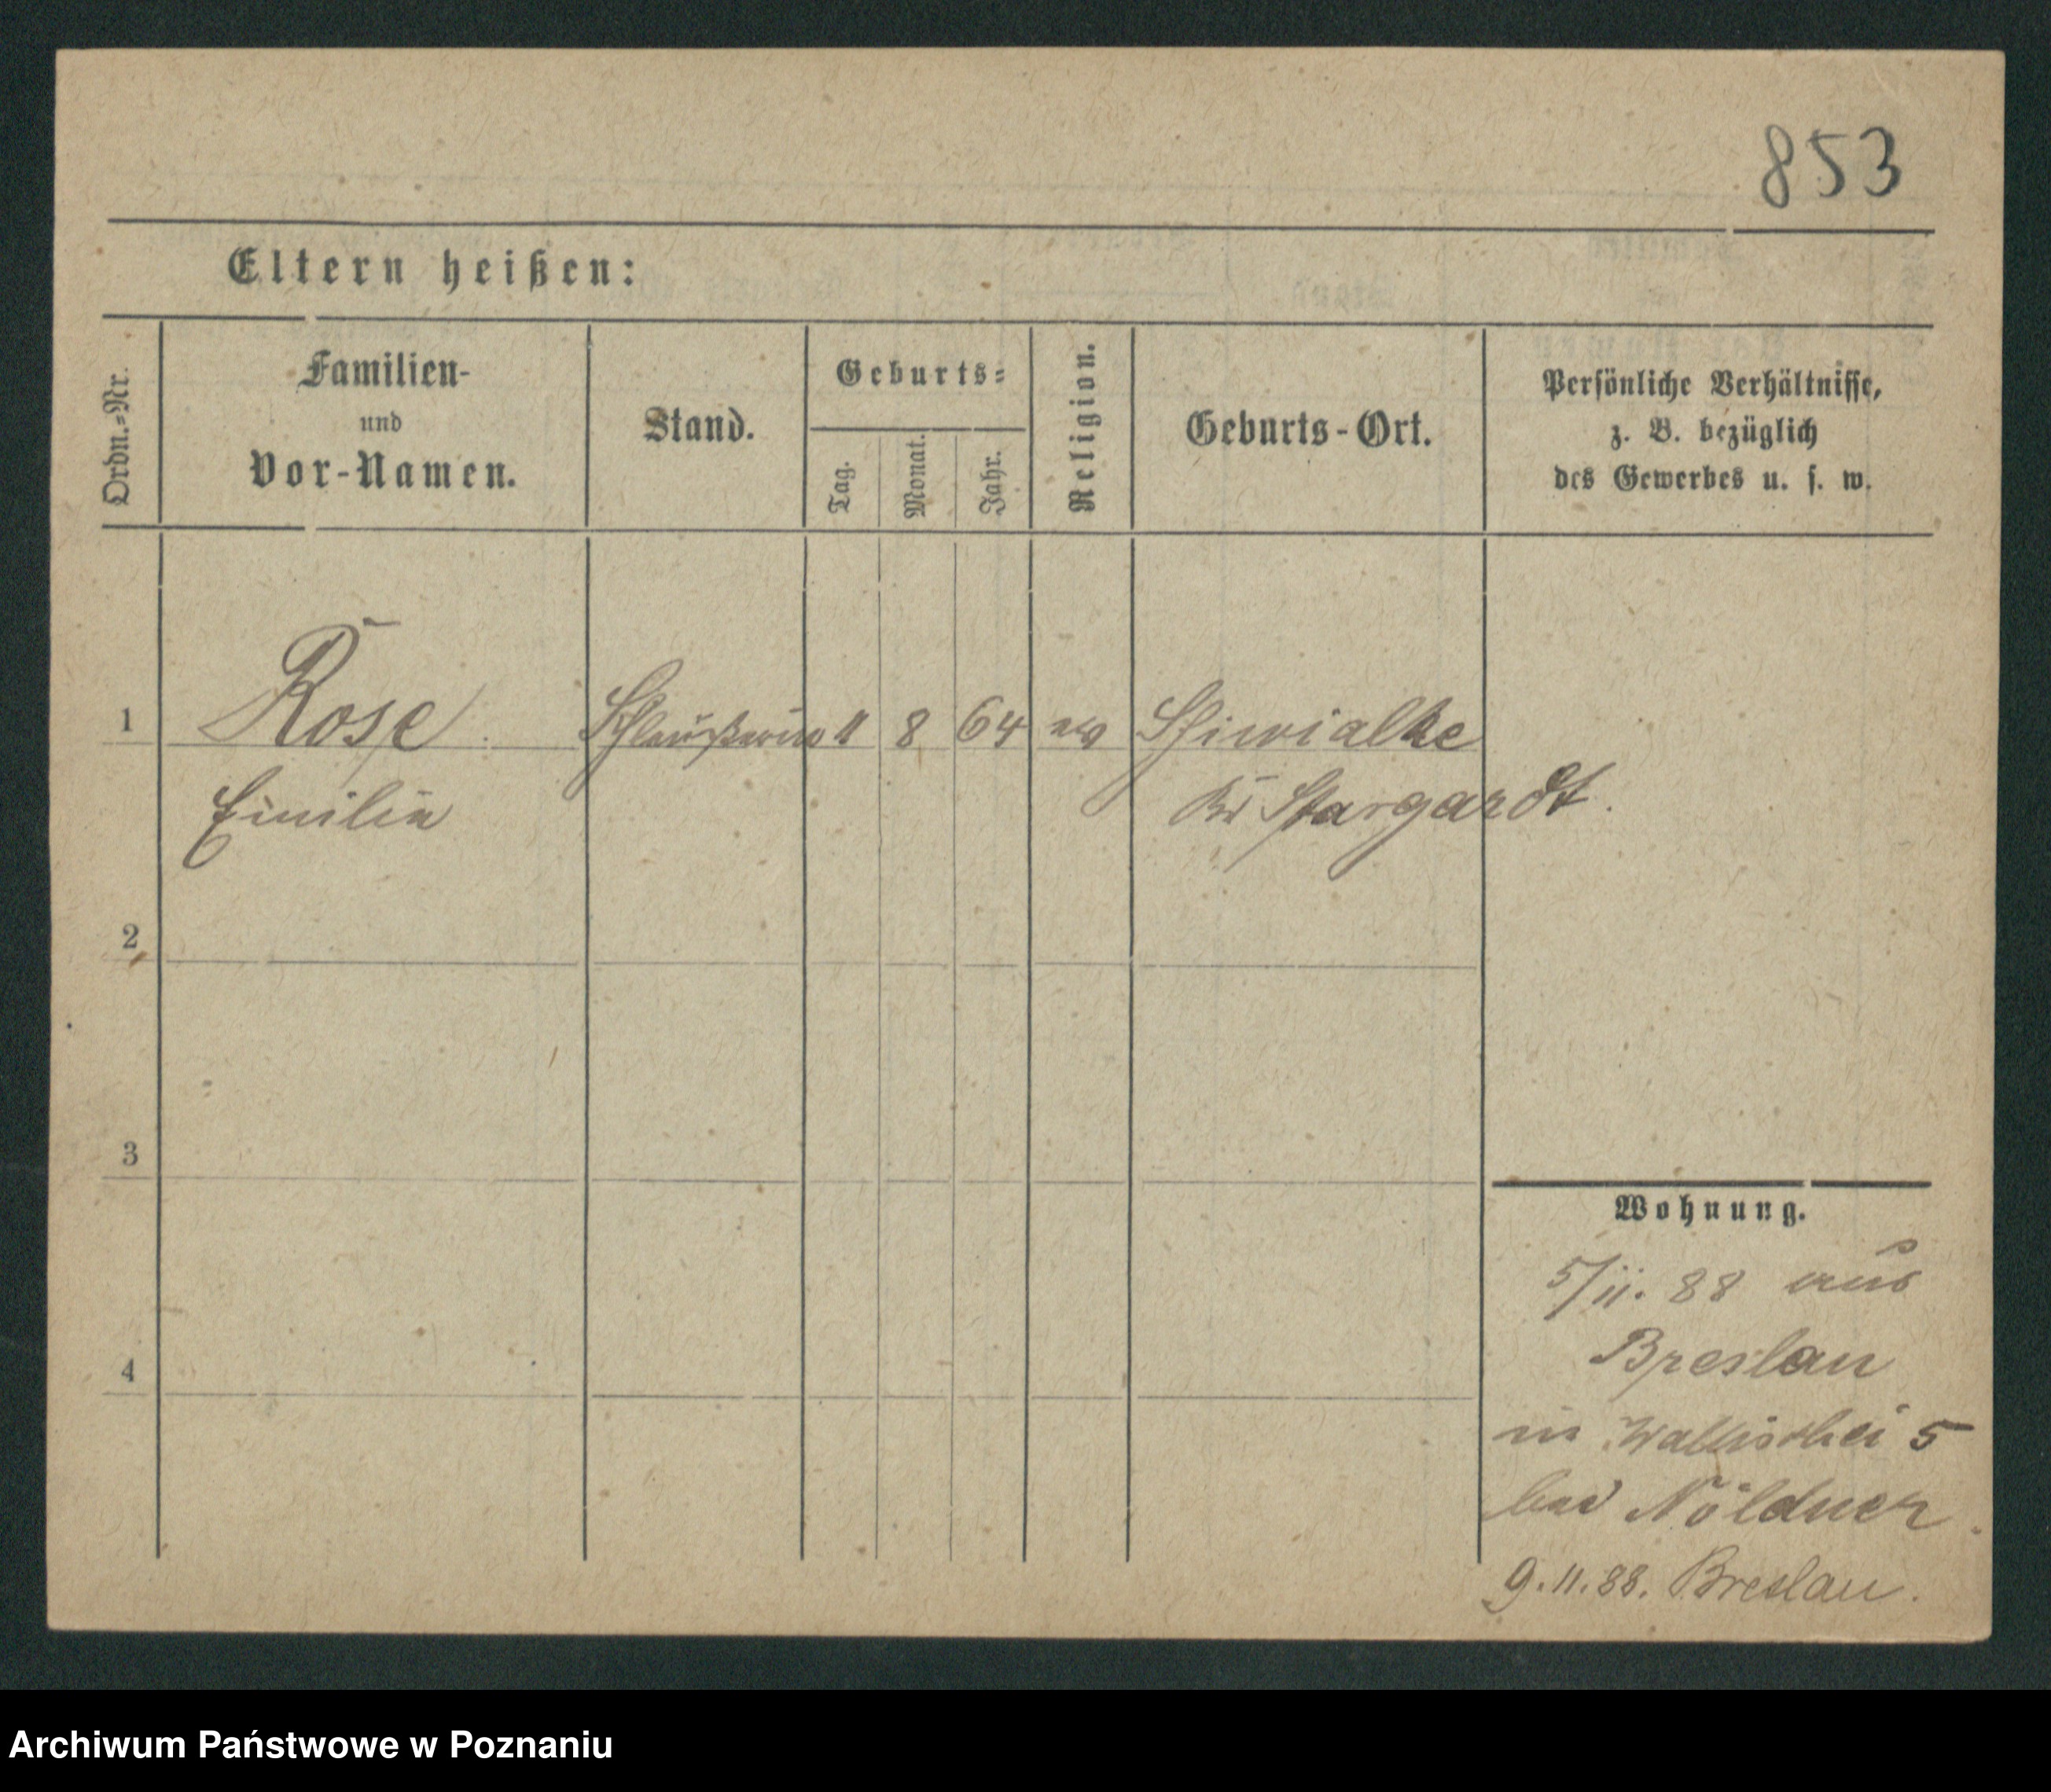 853
Eltern heißen:
Ordn.-Nr.
Familien-
und
Vor-Namen.
Stand.
Geburts-
Tag.
Monat.
Jahr.
Religion.
Geburts-Ort.
Persönliche Verhältnisse,
z. B. bezüglich
des Gewerbes u. s. w.
1 Rose 11 8 64 ev
Emilie
Kr Stargardt.
2
3
4
Wohnung.
5/11. 88 aus
Breslau
in Wallischei 5
bei Nöldner
9.11.88. Breslau.
Archiwum Państwowe w Poznaniu